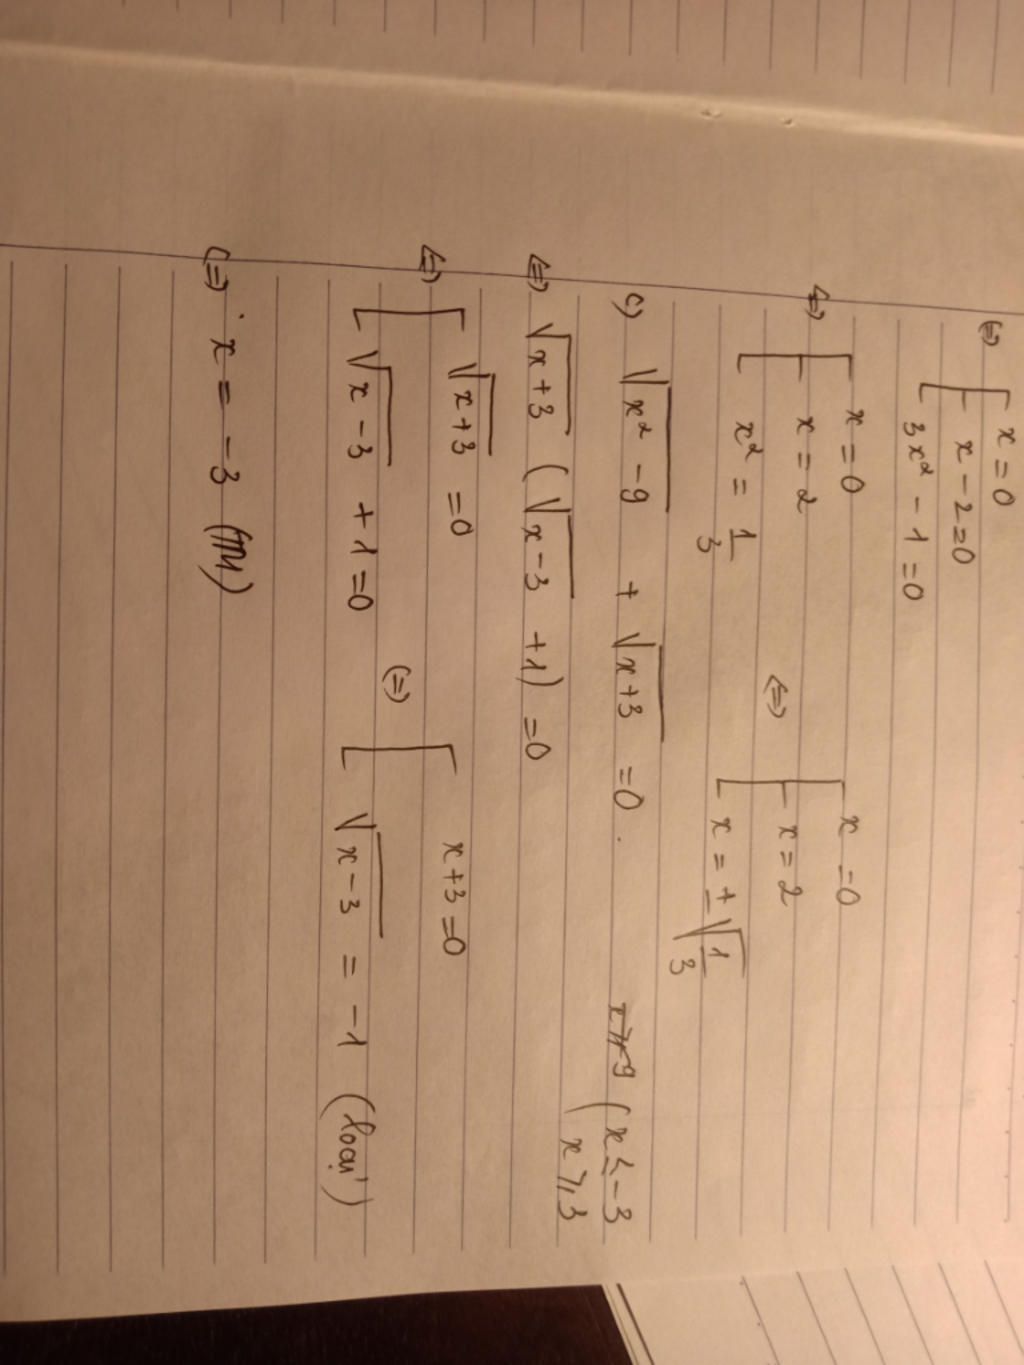 (=) [ x = 0
x - 2 = 0
3x² - 1 = 0
<=> [ x = 0
x = 2
x² = 1/3
<=> [ x = 0
x = 2
x = ± √(1/3)
c) √(x² - 9) + √(x+3) = 0.
( x ≤ -3
x ≥ 3
<=> √(x+3) (√(x-3) + 1) = 0
<=> [ √(x+3) = 0
√(x-3) + 1 = 0
(=) [ x+3 = 0
√(x-3) = -1 (loại)
(=) x = -3 (TM)